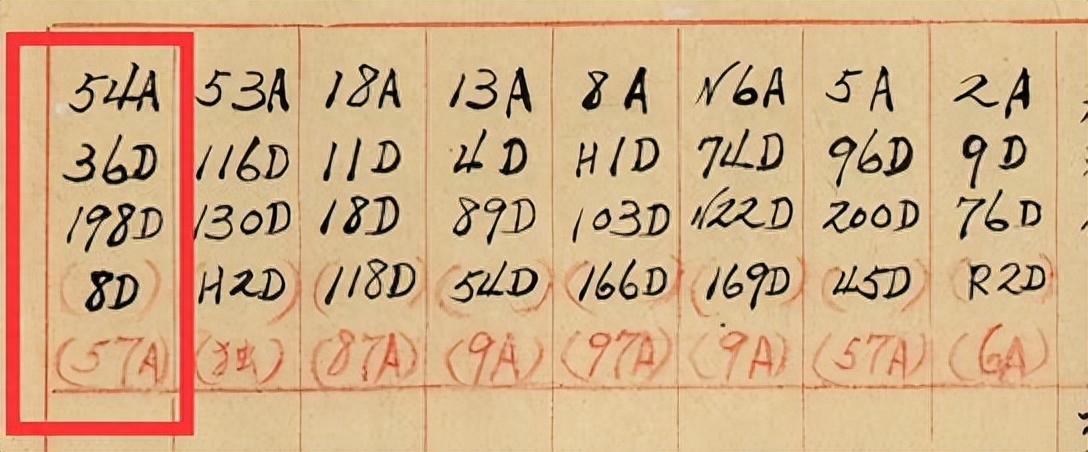 54A 53A 18A 13A 8A N6A 5A 2A
36D 116D 11D 4D H1D 74D 96D 9D
198D 130D 18D 89D 103D N22D 200D 76D
(8D) H2D (118D) (54D) (166D) (169D) (45D) (R2D)
(57A) (87A) (9A) (97A) (9A) (57A) (6A)